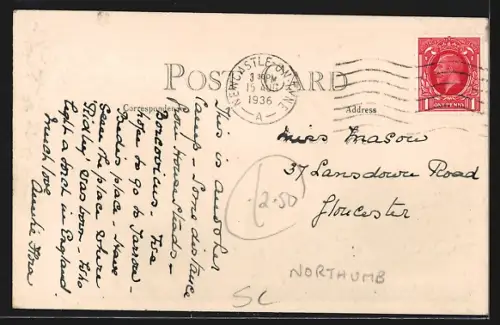 POST CARD
Correspondence
Address
NEWCASTLE-ON-TYNE
PM
15 AUG
1936
A
ONE PENNY
This is another
Camp - Some distance
from Housesteads -
Borcovicus - Five
hope to go to Jarrow -
Bedes place - Have
seen the place where
Ridley was born - who
light a torch in England
much love
Auntie Flora
Miss Mason
37 Lansdown Road
Gloucester
2.50
NORTHUMB
SC